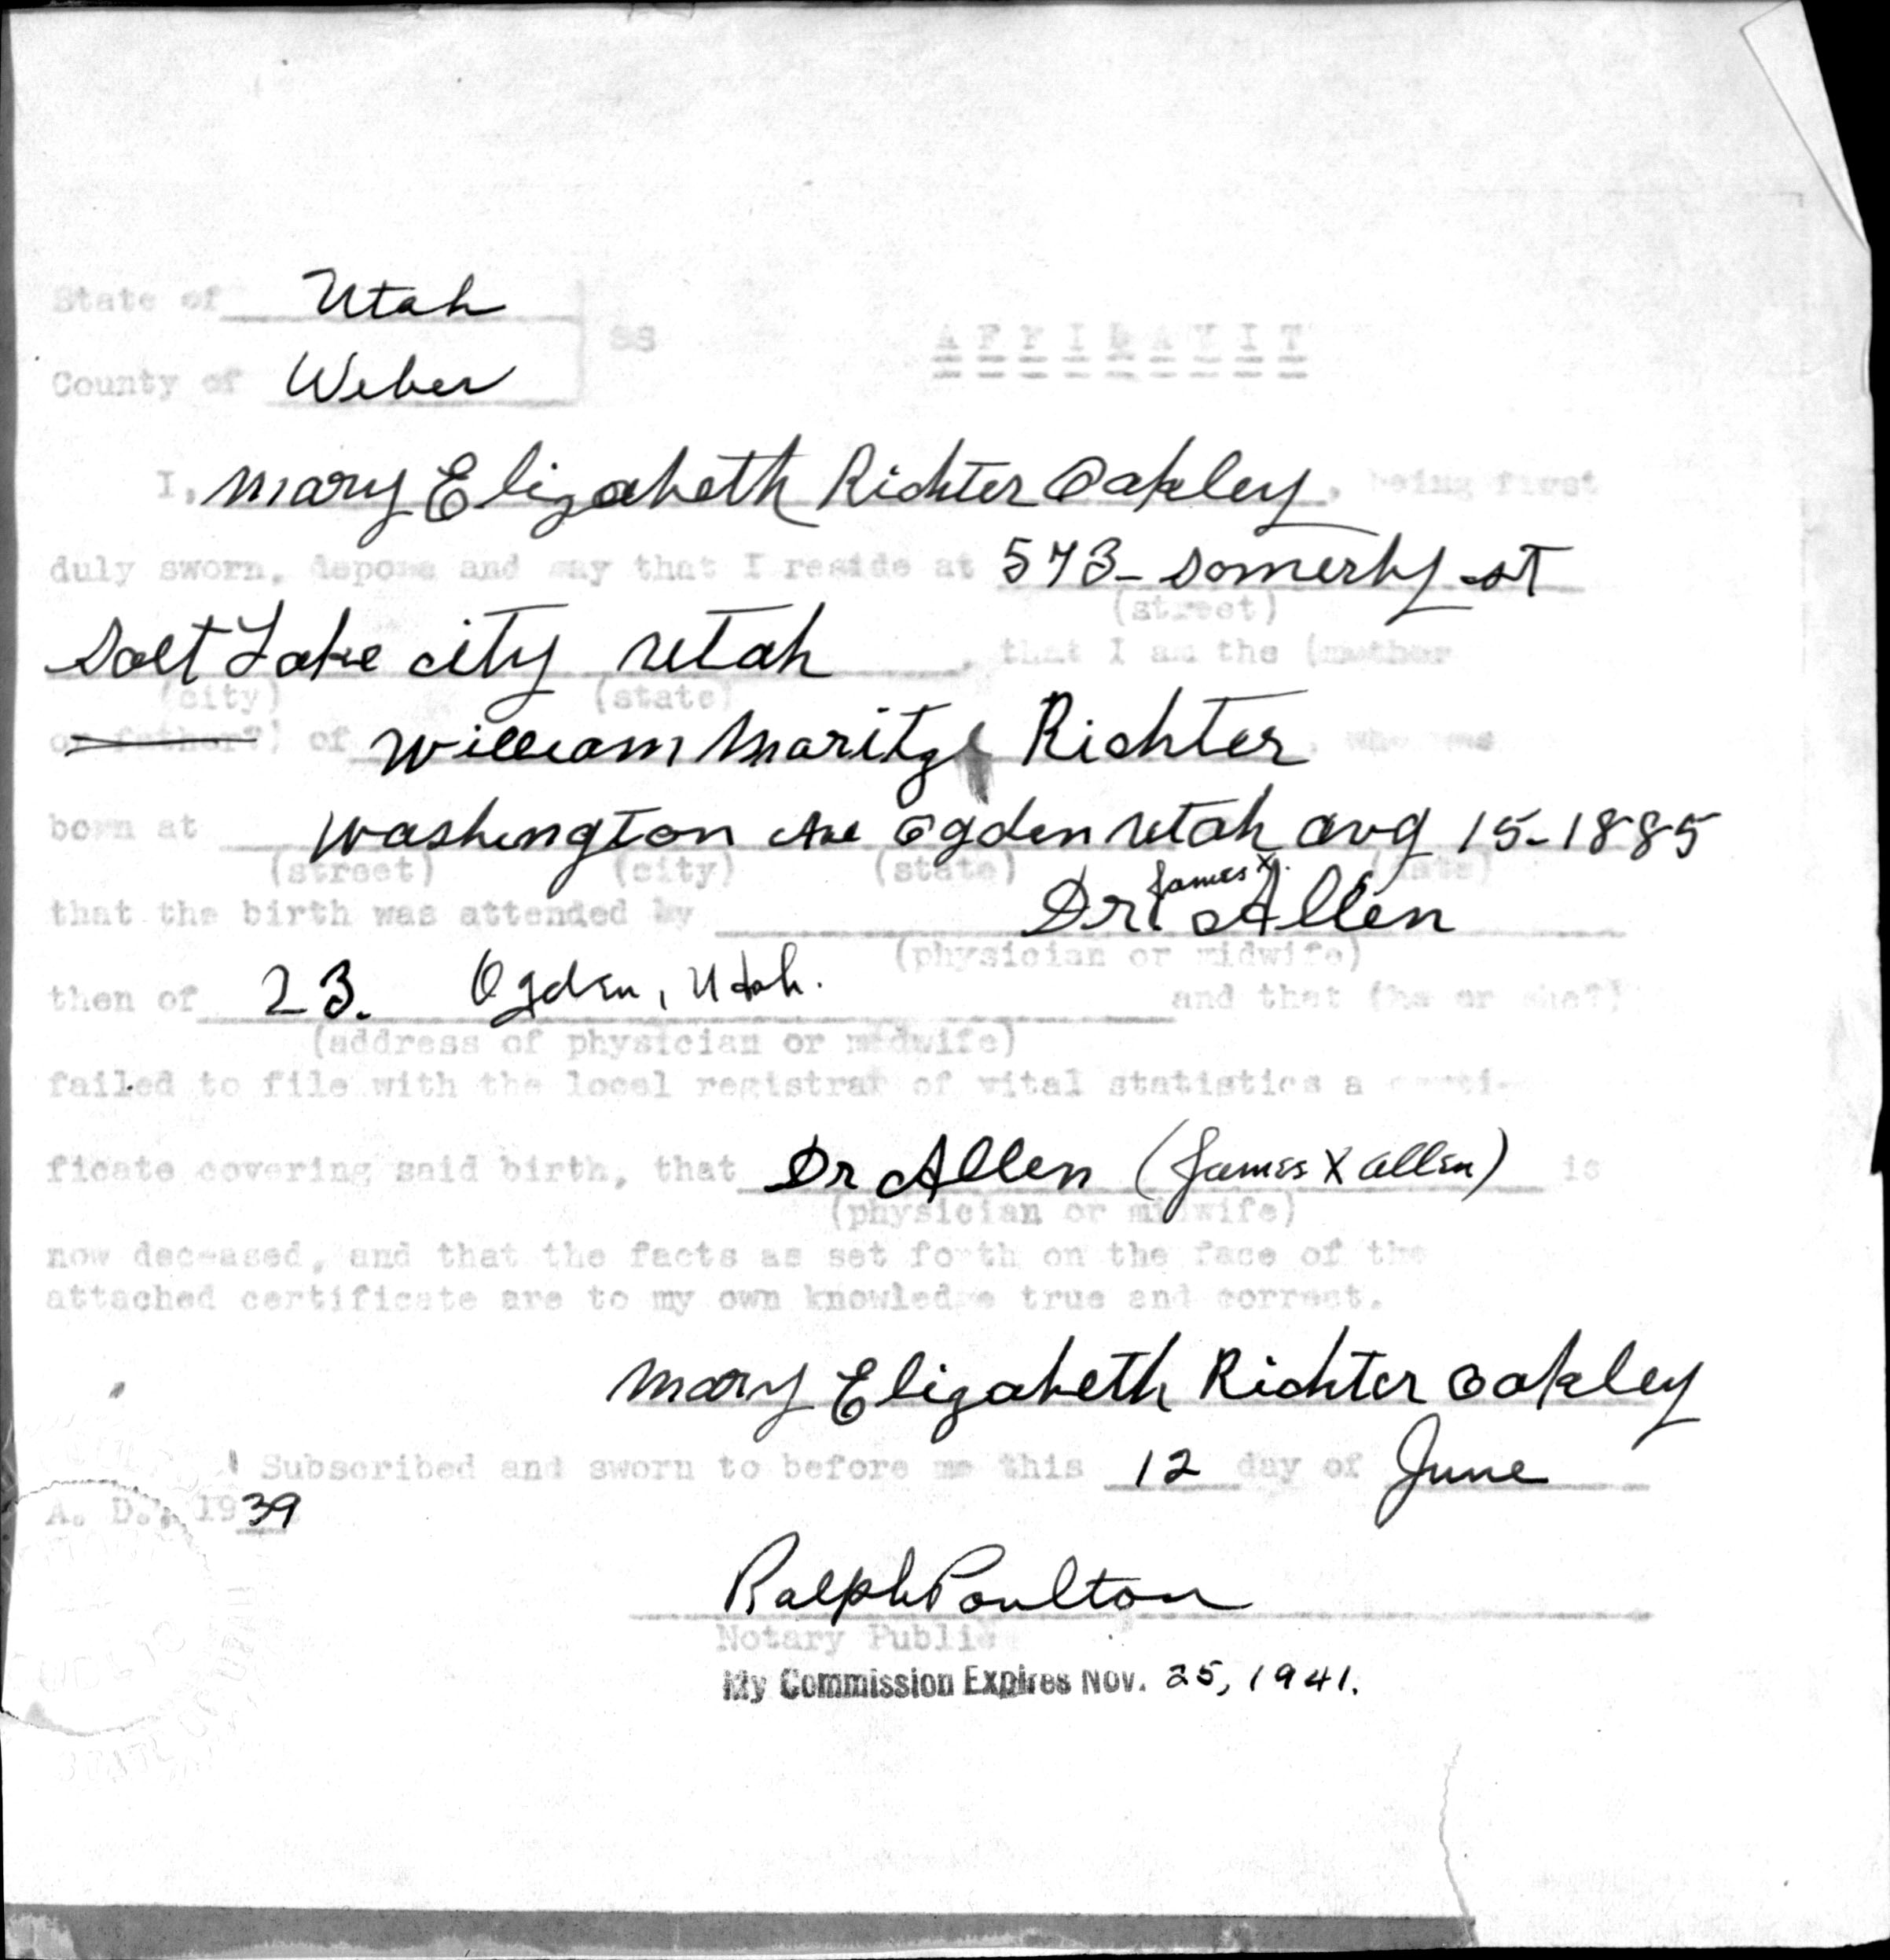 State of Utah
SS AFFIDAVIT
County of Weber
I, Mary Elizabeth Richter Oakley, being first
duly sworn, depose and say that I reside at 573- Somerby st
(street)
Salt Lake city Utah, that I am the (mother
(city) (state)
or father?) of William Maritz Richter, who was
born at Washington Ave Ogden Utah Aug 15-1885
(street) (city) (state) (date)
that the birth was attended by Dr. James X. Allen
(physician or midwife)
then of 23. Ogden, Utah. and that (he or she?)
(address of physician or midwife)
failed to file with the local registrar of vital statistics a certi-
ficate covering said birth, that Dr Allen (James X Allen) is
(physician or midwife)
now deceased, and that the facts as set forth on the face of the
attached certificate are to my own knowledge true and correct.
Mary Elizabeth Richter Oakley
Subscribed and sworn to before me this 12 day of June
A. D., 1939
Ralph Poulton
Notary Public
My Commission Expires Nov. 25, 1941.